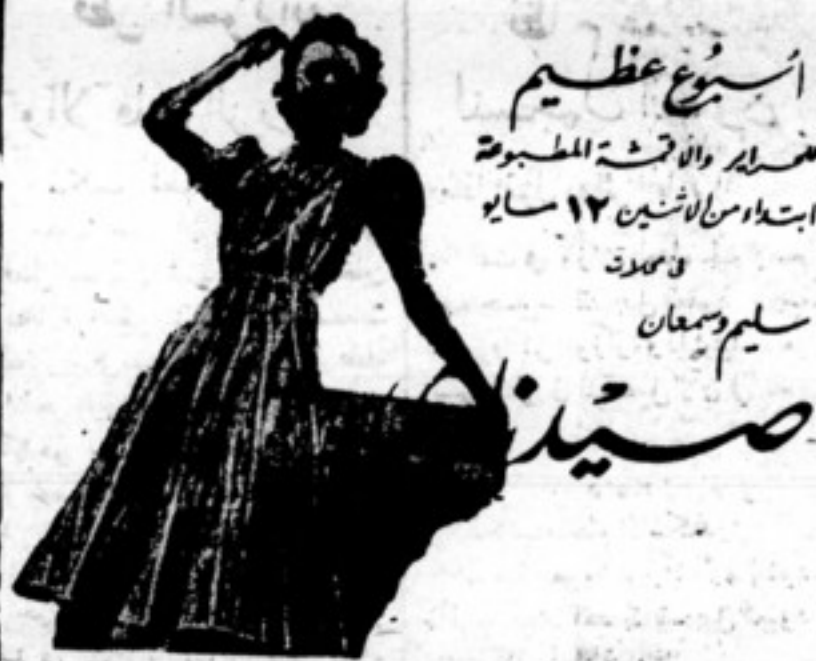 أسبوع عظيم
للحراير والاقمشة المطبوعة
ابتداء من الاثنين ١٢ مايو
فى محلات
سليم وسمعان
صيدناوى